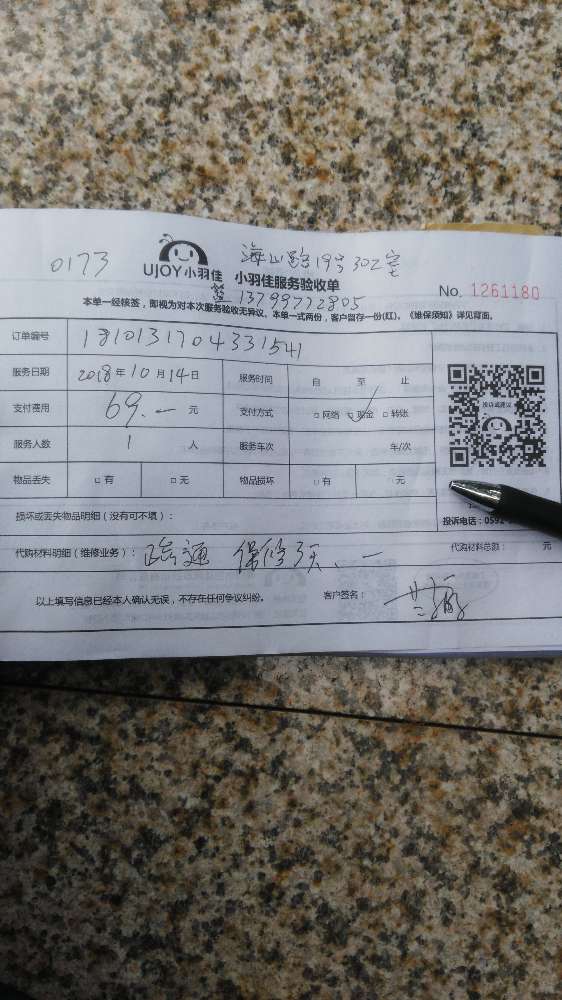 0173
海山路19号302室
UJOY小羽佳 小羽佳服务验收单
No. 1261180
13799772805
本单一经核签，即视为对本次服务验收无异议。本单一式两份，客户留存一份(红)。《维保须知》详见背面。
订单编号 1810131704331541
服务日期 2018年10月14日 服务时间 自 至 止
支付费用 69.一 元 支付方式 □网络 □现金 □转账
投诉或建议
服务人数 1 人 服务车次 车/次
物品丢失 □有 □无 物品损坏 □有 □无
损坏或丢失物品明细（没有可不填）：
投诉电话：0592
代购材料明细（维修业务）： 疏通 保修 代购材料总额： 元
以上填写信息已经本人确认无误，不存在任何争议纠纷。 客户签名：